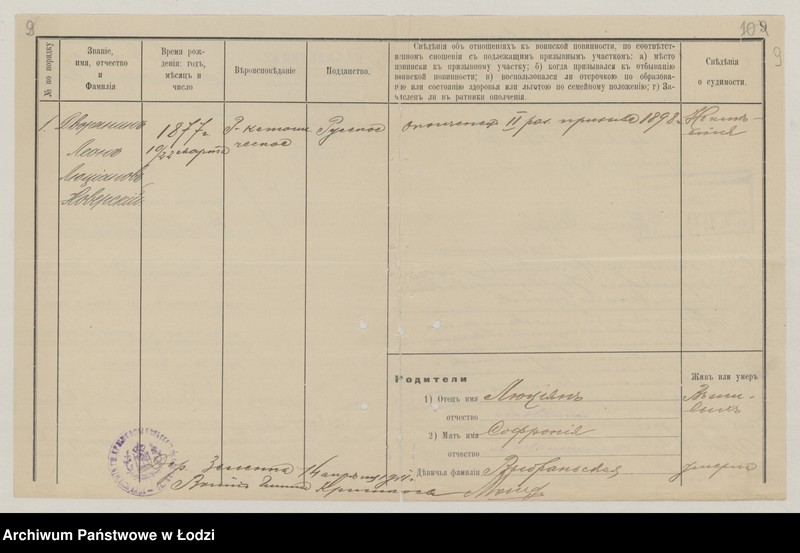 9
109
9
№ по порядку
Званіе,
имя, отчество
и
Фамилія
Время рож-
денія: годъ,
мѣсяцъ и
число
Вѣроисповѣданіе
Подданство.
Свѣдѣнія объ отношеніяхъ къ воинской повинности, по соотвѣтс-
венномъ сношеніи съ подлежащимъ призывнымъ участкомъ: а) мѣсто
приписки къ призывному участку; б) когда призывался къ отбыванію
воинской повинности; в) воспользовался ли отсрочкою по образова-
нію или состоянію здоровья или льготою по семейному положенію; г) За-
численъ ли въ ратники ополченія.
Свѣдѣнія
о судимости.
1.
Дворянинъ
Леонъ
Люціановъ
1877г.
10/22 марта
Р-католи
ческое
Русское
II раз. призыва 1898
Родители
1) Отецъ имя Люціянъ
отчество
2) Мать имя Софронія
отчество
Дѣвичья фамилія
Живъ или умеръ
умерла
Дер. 14 апрѣля
Archiwum Państwowe w Łodzi